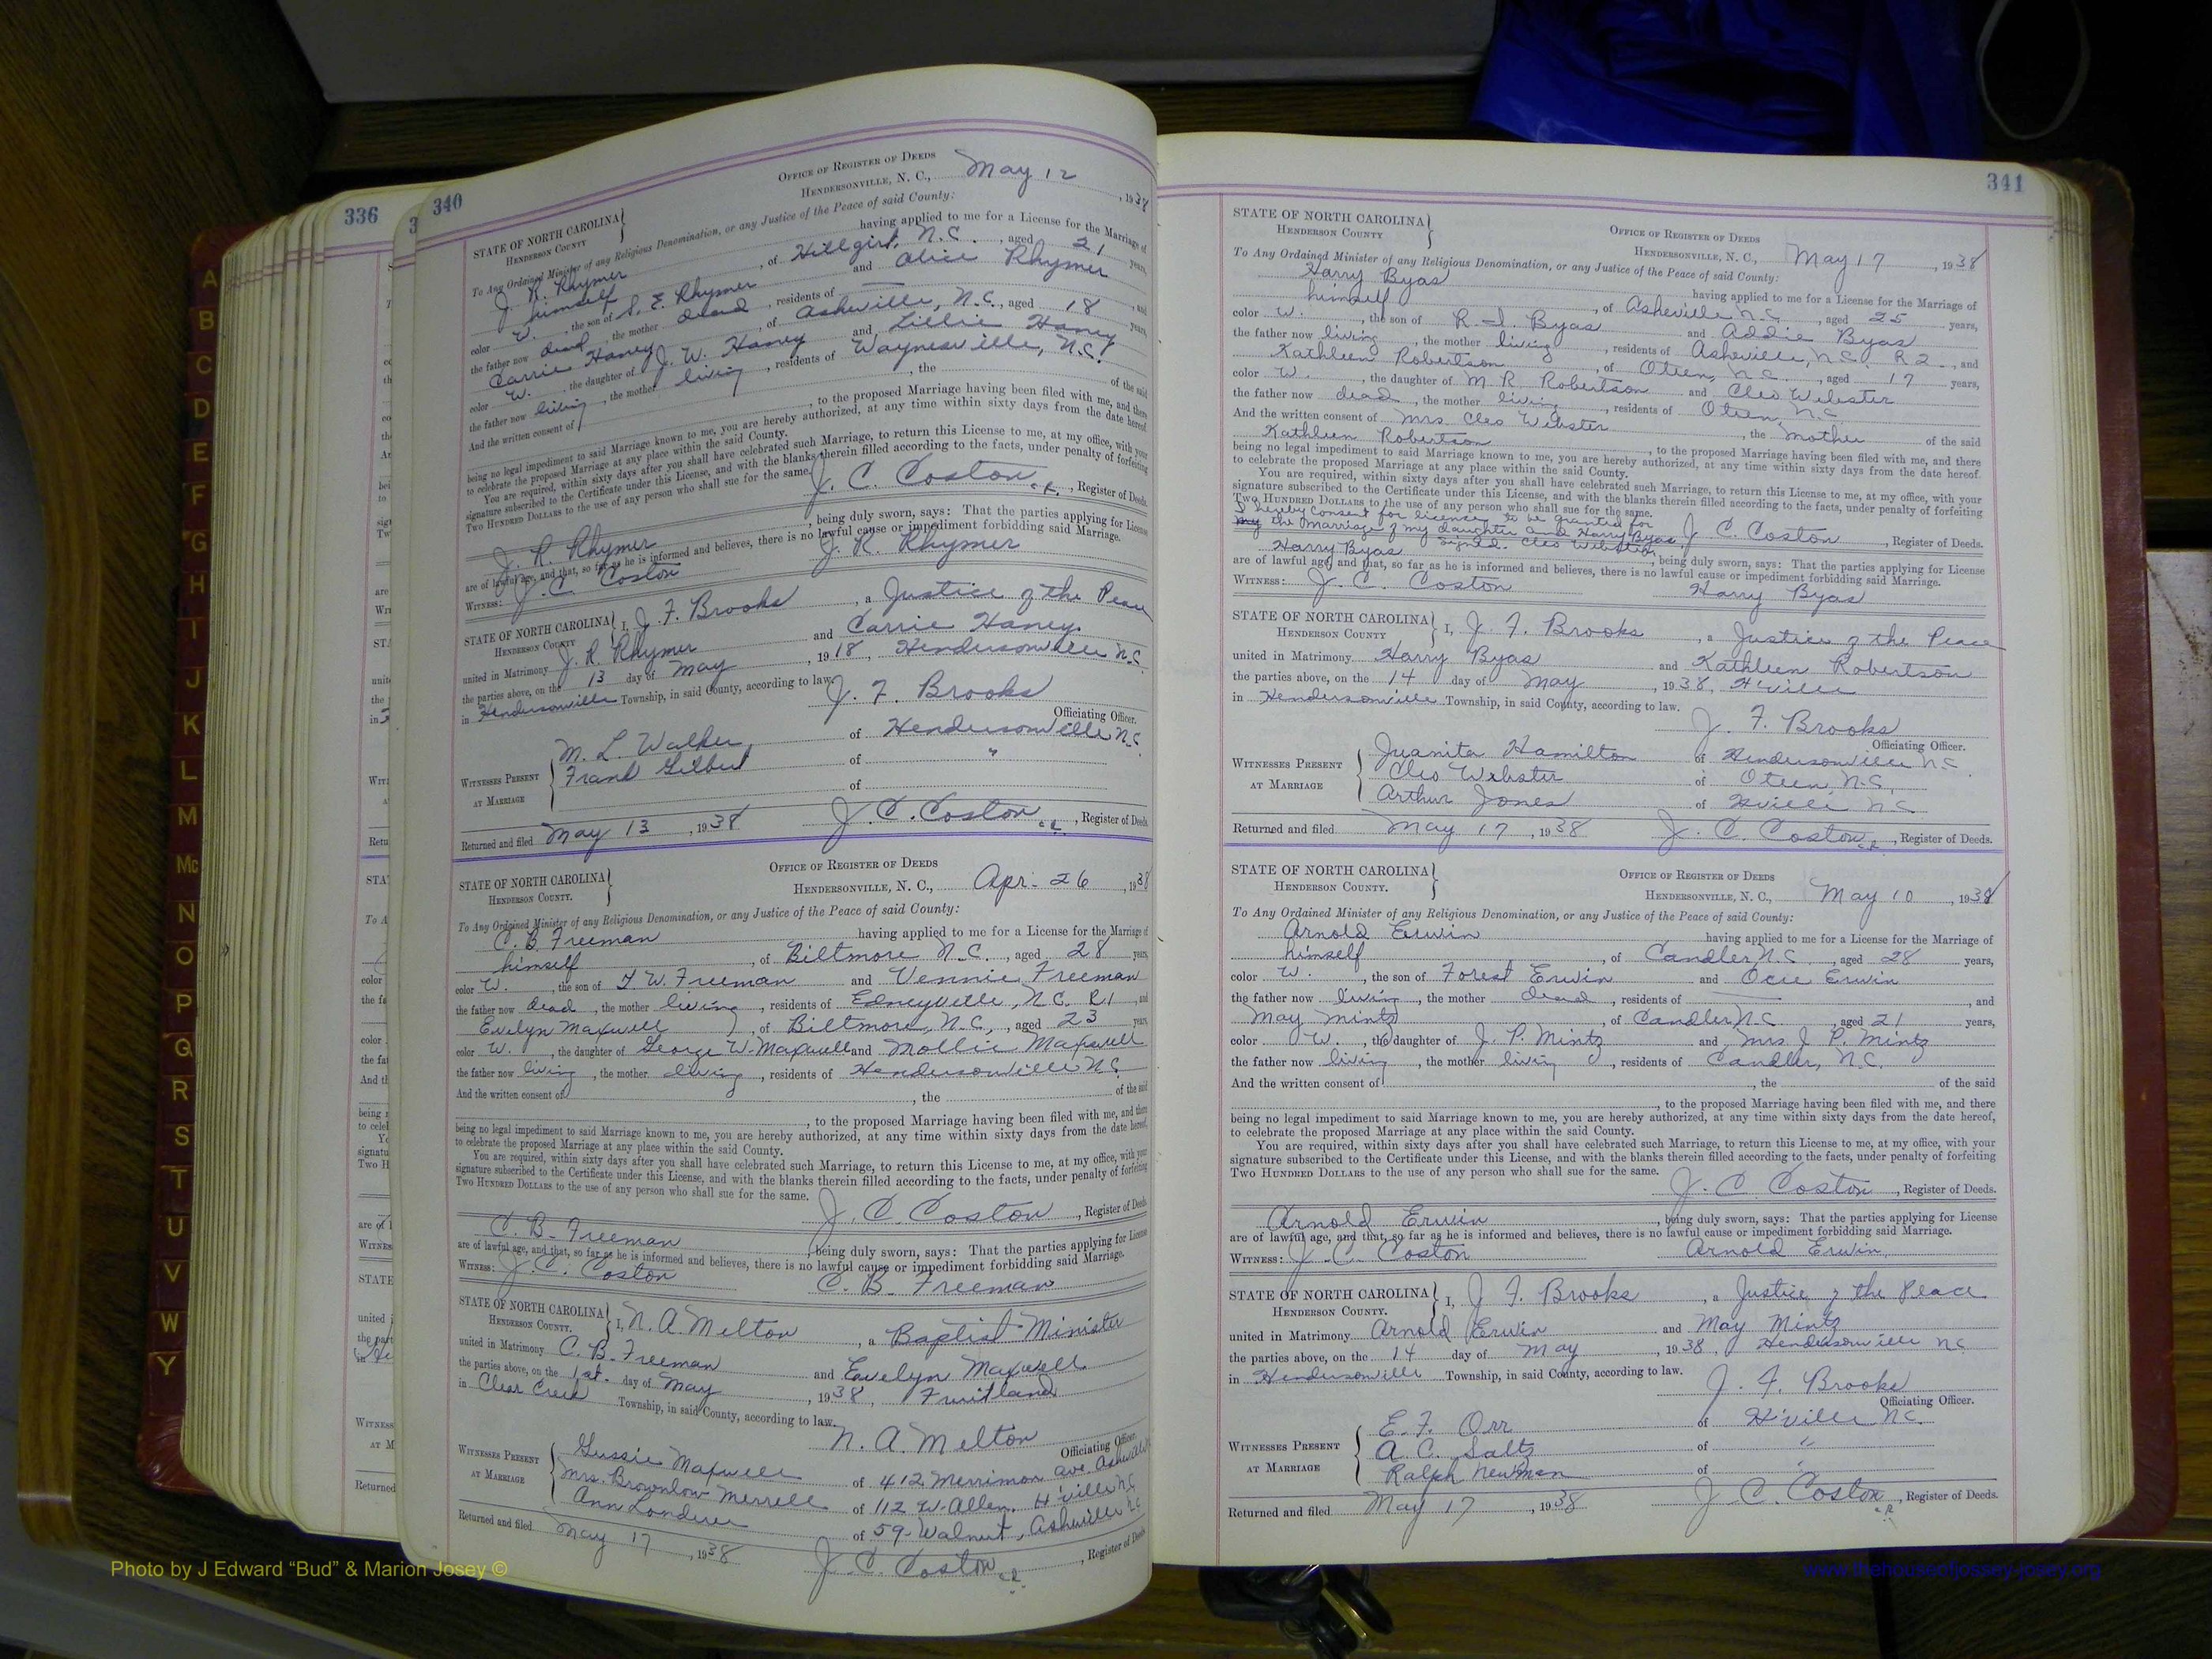 336
340
OFFICE OF REGISTER OF DEEDS
HENDERSONVILLE, N. C., May 12, 1938
STATE OF NORTH CAROLINA
HENDERSON COUNTY
To Any Ordained Minister of any Religious Denomination, or any Justice of the Peace of said County:
J. R. Rhymer having applied to me for a License for the Marriage of
himself, of Hillgirt, N.C., aged 21 years,
color W., the son of S. E. Rhymer and Alice Rhymer
the father now dead, the mother dead, residents of , and
Carrie Haney, of Asheville, N.C., aged 18 years,
color W., the daughter of J. W. Haney and Lillie Haney
the father now living, the mother living, residents of Waynesville, N.C.
And the written consent of , the of the said
, to the proposed Marriage having been filed with me, and there
being no legal impediment to said Marriage known to me, you are hereby authorized, at any time within sixty days from the date hereof
to celebrate the proposed Marriage at any place within the said County.
You are required, within sixty days after you shall have celebrated such Marriage, to return this License to me, at my office, with your
signature subscribed to the Certificate under this License, and with the blanks therein filled according to the facts, under penalty of forfeiting
TWO HUNDRED DOLLARS to the use of any person who shall sue for the same.
J. C. Coston, Register of Deeds.
J. R. Rhymer, being duly sworn, says: That the parties applying for License
are of lawful age, and that, so far as he is informed and believes, there is no lawful cause or impediment forbidding said Marriage.
WITNESS: J. C. Coston J. R. Rhymer
STATE OF NORTH CAROLINA I, J. F. Brooks, a Justice of the Peace
HENDERSON COUNTY
united in Matrimony J. R. Rhymer and Carrie Haney
the parties above, on the 13 day of May, 1918, Hendersonville N.C.
in Hendersonville Township, in said County, according to law.
J. F. Brooks
Officiating Officer.
WITNESSES PRESENT AT MARRIAGE
M. L. Walker of Hendersonville N.C.
Frank Gilbert of "
of
Returned and filed May 13, 1938 J. C. Coston, Register of Deeds.
OFFICE OF REGISTER OF DEEDS
STATE OF NORTH CAROLINA
HENDERSON COUNTY.
HENDERSONVILLE, N. C., Apr. 26, 1938
To Any Ordained Minister of any Religious Denomination, or any Justice of the Peace of said County:
C. B. Freeman having applied to me for a License for the Marriage of
himself, of Biltmore N.C., aged 28 years,
color W., the son of T. W. Freeman and Vennie Freeman
the father now dead, the mother living, residents of Edneyville, N.C. R1, and
Evelyn Maxwell, of Biltmore, N.C., aged 23 years,
color W., the daughter of George W. Maxwell and Mollie Maxwell
the father now living, the mother living, residents of Hendersonville N.C.
And the written consent of , the of the said
, to the proposed Marriage having been filed with me, and there
being no legal impediment to said Marriage known to me, you are hereby authorized, at any time within sixty days from the date hereof,
to celebrate the proposed Marriage at any place within the said County.
You are required, within sixty days after you shall have celebrated such Marriage, to return this License to me, at my office, with your
signature subscribed to the Certificate under this License, and with the blanks therein filled according to the facts, under penalty of forfeiting
TWO HUNDRED DOLLARS to the use of any person who shall sue for the same.
J. C. Coston, Register of Deeds.
C. B. Freeman, being duly sworn, says: That the parties applying for License
are of lawful age, and that, so far as he is informed and believes, there is no lawful cause or impediment forbidding said Marriage.
WITNESS: J. C. Coston C. B. Freeman
STATE OF NORTH CAROLINA I, N. A. Melton, a Baptist Minister
HENDERSON COUNTY.
united in Matrimony C. B. Freeman and Evelyn Maxwell
the parties above, on the 1st. day of May, 1938, Fruitland
in Clear Creek Township, in said County, according to law.
N. A. Melton
Officiating Officer.
WITNESSES PRESENT AT MARRIAGE
Gussie Maxwell of 412 Merrimon Ave. Asheville
Mrs. Brownlow Merrell of 112 W. Allen, H'ville N.C.
Ann Landerer of 59 Walnut, Asheville N.C.
Returned and filed May 17, 1938 J. C. Coston, Register of Deeds.
341
STATE OF NORTH CAROLINA
HENDERSON COUNTY
OFFICE OF REGISTER OF DEEDS
HENDERSONVILLE, N. C., May 17, 1938
To Any Ordained Minister of any Religious Denomination, or any Justice of the Peace of said County:
Harry Byas having applied to me for a License for the Marriage of
himself, of Asheville N.C., aged 25 years,
color W., the son of R. I. Byas and Addie Byas
the father now living, the mother living, residents of Asheville, N.C. R2, and
Kathleen Robertson, of Oteen, N.C., aged 17 years,
color W., the daughter of M. R. Robertson and Cleo Webster
the father now dead, the mother living, residents of Oteen N.C.
And the written consent of Mrs Cleo Webster, the Mother of the said
Kathleen Robertson, to the proposed Marriage having been filed with me, and there
being no legal impediment to said Marriage known to me, you are hereby authorized, at any time within sixty days from the date hereof.
to celebrate the proposed Marriage at any place within the said County.
You are required, within sixty days after you shall have celebrated such Marriage, to return this License to me, at my office, with your
signature subscribed to the Certificate under this License, and with the blanks therein filled according to the facts, under penalty of forfeiting
TWO HUNDRED DOLLARS to the use of any person who shall sue for the same.
I hereby consent for license to be granted for
my the Marriage of my daughter and Harry Byas J. C. Coston, Register of Deeds.
Signed. Cleo Webster
Harry Byas, being duly sworn, says: That the parties applying for License
are of lawful age, and that, so far as he is informed and believes, there is no lawful cause or impediment forbidding said Marriage.
WITNESS: J. C. Coston Harry Byas
STATE OF NORTH CAROLINA I, J. F. Brooks, a Justice of the Peace
HENDERSON COUNTY
united in Matrimony Harry Byas and Kathleen Robertson
the parties above, on the 14 day of May, 1938, H'ville
in Hendersonville Township, in said County, according to law.
J. F. Brooks
Officiating Officer.
WITNESSES PRESENT AT MARRIAGE
Juanita Hamilton of Hendersonville N.C.
Cleo Webster of Oteen, N.C.
Arthur Jones of Hville N.C.
Returned and filed May 17, 1938 J. C. Coston, Register of Deeds.
STATE OF NORTH CAROLINA
HENDERSON COUNTY.
OFFICE OF REGISTER OF DEEDS
HENDERSONVILLE, N. C., May 10, 1938
To Any Ordained Minister of any Religious Denomination, or any Justice of the Peace of said County:
Arnold Erwin having applied to me for a License for the Marriage of
himself, of Candler N.C., aged 28 years,
color W., the son of Forest Erwin and Ocie Erwin
the father now living, the mother dead, residents of , and
May Mintz, of Candler N.C., aged 21 years,
color W., the daughter of J. P. Mintz and Mrs J. P. Mintz
the father now living, the mother living, residents of Candler, N.C.
And the written consent of , the of the said
, to the proposed Marriage having been filed with me, and there
being no legal impediment to said Marriage known to me, you are hereby authorized, at any time within sixty days from the date hereof,
to celebrate the proposed Marriage at any place within the said County.
You are required, within sixty days after you shall have celebrated such Marriage, to return this License to me, at my office, with your
signature subscribed to the Certificate under this License, and with the blanks therein filled according to the facts, under penalty of forfeiting
TWO HUNDRED DOLLARS to the use of any person who shall sue for the same.
J. C. Coston, Register of Deeds.
Arnold Erwin, being duly sworn, says: That the parties applying for License
are of lawful age, and that, so far as he is informed and believes, there is no lawful cause or impediment forbidding said Marriage.
WITNESS: J. C. Coston Arnold Erwin
STATE OF NORTH CAROLINA I, J. F. Brooks, a Justice of the Peace
HENDERSON COUNTY.
united in Matrimony Arnold Erwin and May Mintz
the parties above, on the 14 day of May, 1938, Hendersonville NC
in Hendersonville Township, in said County, according to law.
J. F. Brooks
Officiating Officer.
WITNESSES PRESENT AT MARRIAGE
E. F. Orr of H'ville N.C.
A. C. Saltz of "
Ralph Newman of "
Returned and filed May 17, 1938 J. C. Coston, Register of Deeds.
A
B
C
D
E
F
G
H
I
J
K
L
M
Mc
N
O
P
Q
R
S
T
U
V
W
Y
Photo by J Edward “Bud” & Marion Josey ©
www.thehouseofjossey-josey.org